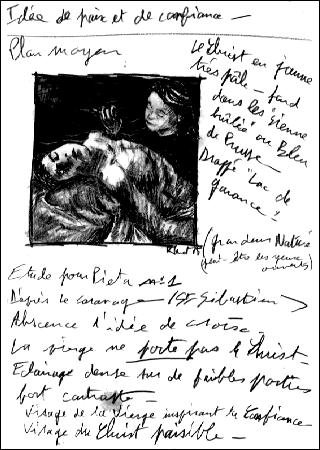 Idée de paix et de confiance —
Plan moyen
Le Christ en jaune
très pâle — fond
dans les Sienne
brûlée ou Bleu
de Prusse —
Drappé "Lac de
garance"?
(grandeur Nature
(peut-être les yeux
ouverts)
Etude pour Pieta n°1
D'après le caravage — (St Sébastien)
Abscence d'idée de croix.
La vierge ne porte pas le Christ
Eclairage dense sur de faibles parties
fort contraste —
Visage de la Vierge inspirant la Confiance
Visage du Christ paisible —